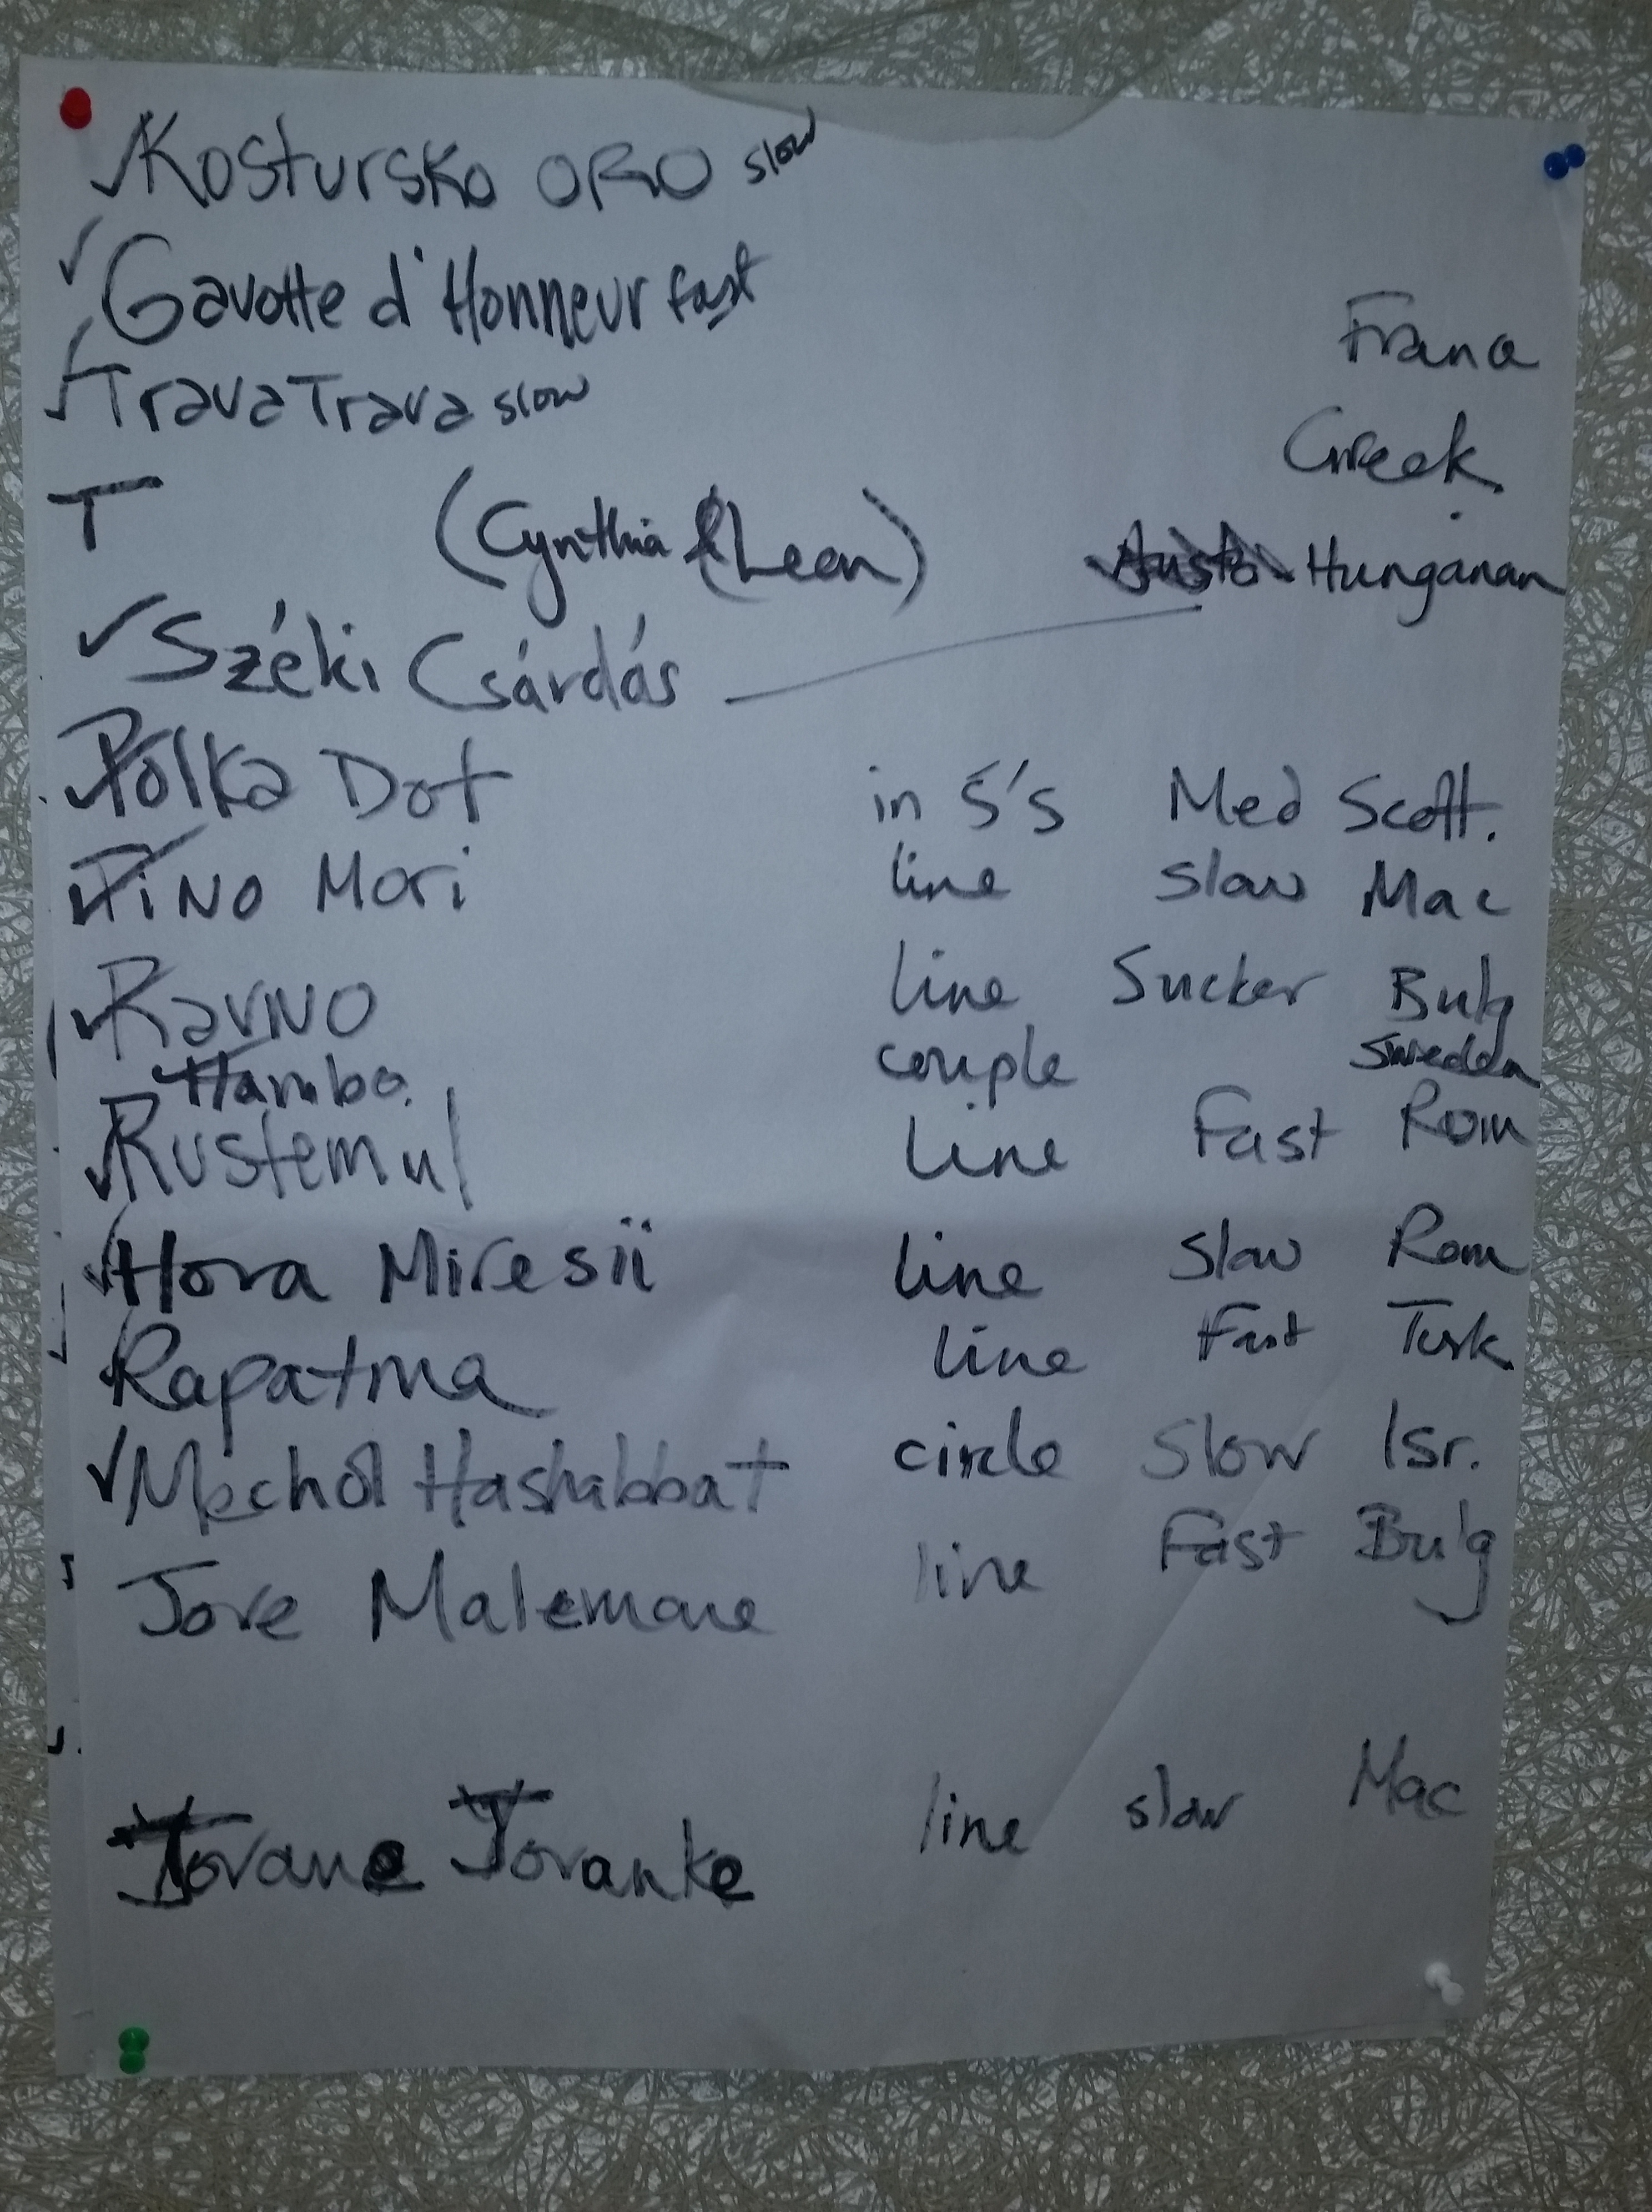 ✓Kostursko ORO slow
✓Gavotte d'Honneur fast France
✓Trava Trava slow Greek
T (Cynthia & Leon)
✓Széki Csárdás — Hungarian
✓Polka Dot in 5's Med Scott.
✓Pino Mori line slow Mac
✓Ravno line Sucker Bulg
Hambo. couple Sweden
✓Rustemul line Fast Rom
✓Hora Miresii line slow Rom
✓Rapatma line Fast Turk
✓Mechol Hashabbat circle Slow Isr.
Jove Malemome line Fast Bulg
Jovane Jovanke line slow Mac